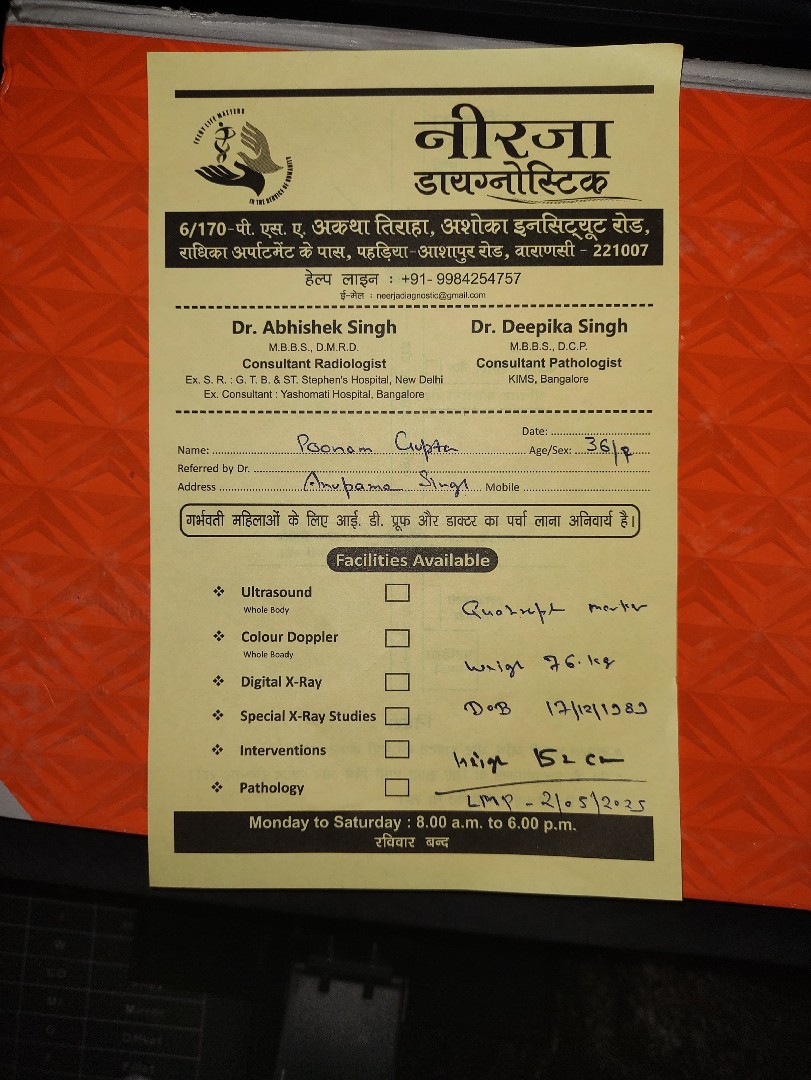 EVERY LIFE MATTERS
IN THE SERVICE OF HUMANITY
नीरजा
डायग्नोस्टिक
6/170-पी. एस. ए. अकथा तिराहा, अशोका इनसिट्यूट रोड,
राधिका अर्पाटमेंट के पास, पहड़िया-आशापुर रोड, वाराणसी - 221007
हेल्प लाइन : +91- 9984254757
ई-मेल : neerjadiagnostic@gmail.com
Dr. Abhishek Singh
M.B.B.S., D.M.R.D.
Consultant Radiologist
Ex. S. R. : G. T. B. & ST. Stephen's Hospital, New Delhi
Ex. Consultant : Yashomati Hospital, Bangalore
Dr. Deepika Singh
M.B.B.S., D.C.P.
Consultant Pathologist
KIMS, Bangalore
Date:
Name: Poonam Gupta Age/Sex: 36/F
Referred by Dr.
Address Anupama Singh Mobile
गर्भवती महिलाओं के लिए आई. डी. प्रूफ और डाक्टर का पर्चा लाना अनिवार्य है।
Facilities Available
Ultrasound
Whole Body
Colour Doppler
Whole Boady
Digital X-Ray
Special X-Ray Studies
Interventions
Pathology
marker
weigh 76.kg
DOB 17/12/1989
heigh 152 cm
LMP - 2/05/2025
Monday to Saturday : 8.00 a.m. to 6.00 p.m.
रविवार बन्द